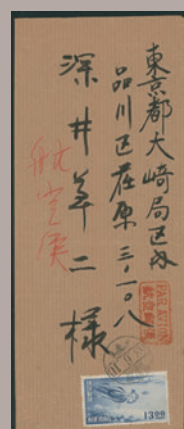 東京都大崎局区内
品川区荏原三ノ一〇八
深井 二様
航空便
PAR AVION
13.00